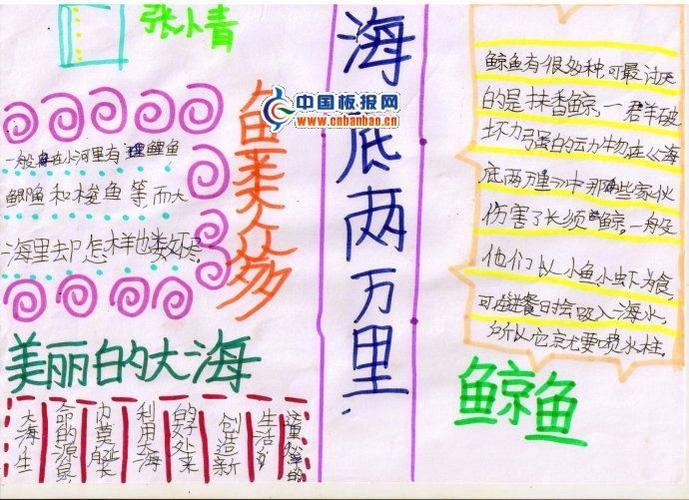 张小青
中国板报网
www.cnbanbao.cn
海底两万里
鱼类众多
一般在小河里有鲤鱼
鲫鱼和梭鱼等而大
海里却怎样也数不尽
美丽的大海
大海生
命的源泉
内莫船长
利用大海
的好处来
创造新
生活
鲸鱼
鲸鱼有很多种,可最讨厌
的是抹香鲸,一群破
坏力强的动物,在《海
底两万里》中那些家伙
伤害了长须鲸。一般
他们以小鱼小虾为食,
可在进餐时会吸入海水,
所以它就要喷水柱。